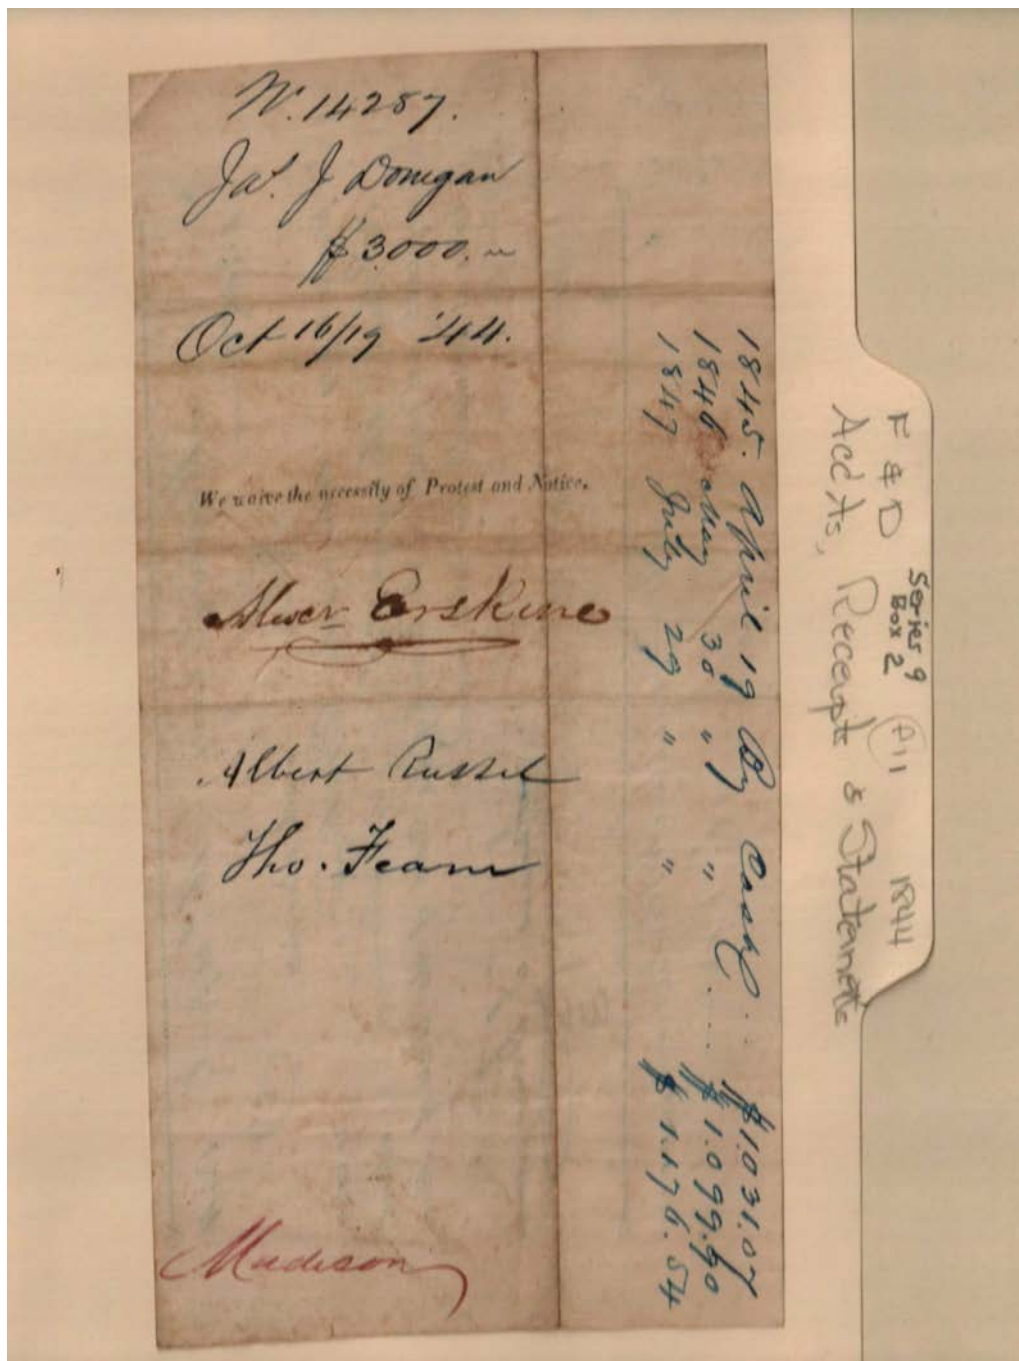 N. 14287.
Jas. J Donegan
$3.000.
Oct 16/19 '44.
We waive the necessity of Protest and Notice.
Alexr Erskine
Albert Russel
Tho. Fearn
Madison
1845. April 19 By Cash... $1.031.07
1846 May 30 " " .... $1.099.90
1847 July 29 " " $1.176.54
F & D 1844
Accts, Receipts & Statements
Series 9
Box 2